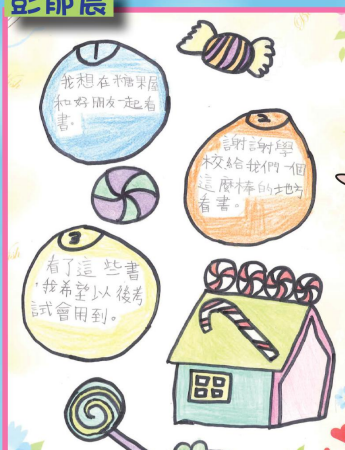 1
我想在糖果屋
和好朋友一起看
書。
2
謝謝學
校給我們一個
這麼棒的地方
看書。
3
看了這些書
,我希望以後考
試會用到。